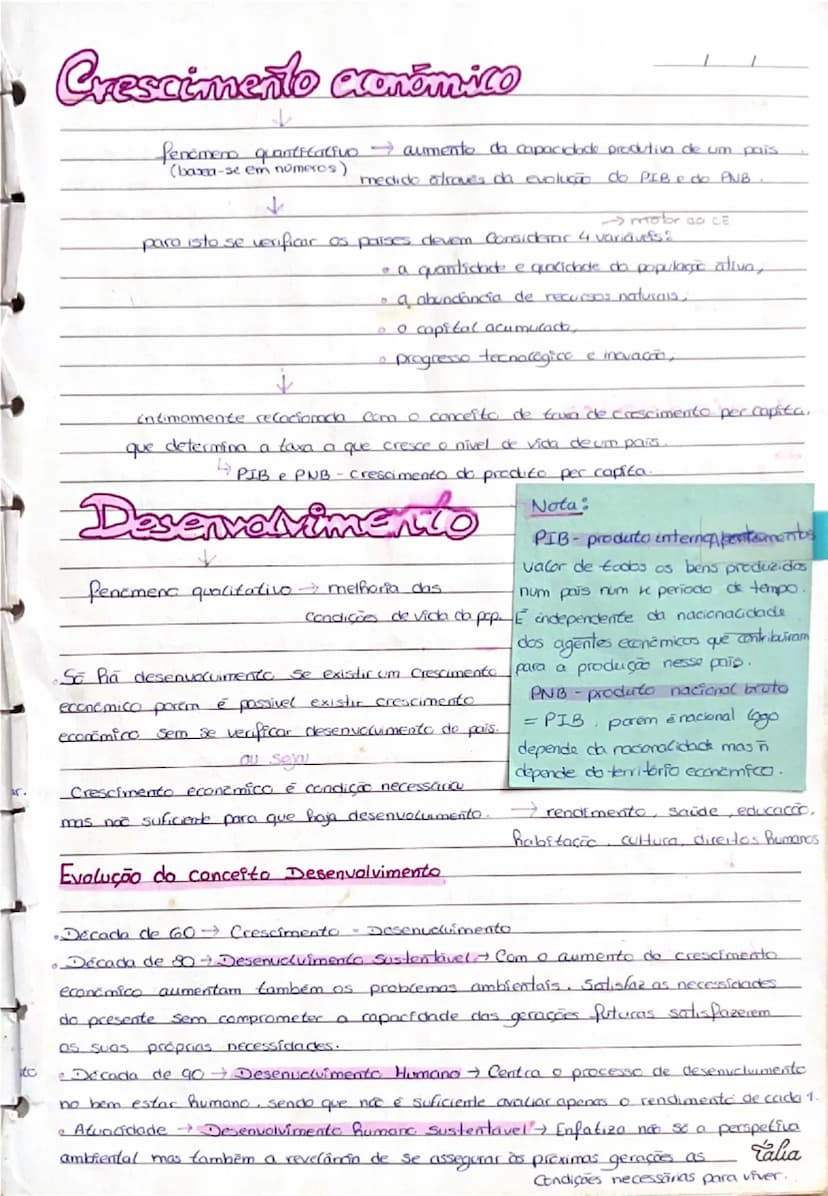 Crescimento económico
↓
fenómeno quantitativo → aumento da capacidade produtiva de um país
(baseia-se em números) medido através da evolução do PIB e do PNB.
↓
→ motor do CE
para isto se verificar os países devem considerar 4 variáveis:
• a quantidade e qualidade da população ativa;
• a abundância de recursos naturais;
• o capital acumulado;
• progresso tecnológico e inovação;
↓
intimamente relacionada com o conceito de taxa de crescimento per capita,
que determina a taxa a que cresce o nível de vida de um país.
↳ PIB e PNB - crescimento do produto per capita.
Desenvolvimento
↓
fenómeno qualitativo → melhoria das
condições de vida da pop.
• Só há desenvolvimento se existir um crescimento
económico porém é possível existir crescimento
económico sem se verificar desenvolvimento do país.
ou seja
Crescimento económico é condição necessária
mas não suficiente para que haja desenvolvimento.
→ rendimento, saúde, educação,
habitação, cultura, direitos humanos
Nota:
PIB - produto interno
valor de todos os bens produzidos
num país num período de tempo.
É independente da nacionalidade
dos agentes económicos que contribuíram
para a produção nesse país.
PNB - produto nacional bruto
= PIB, porém é nacional logo
depende da nacionalidade mas ñ
depende do território económico.
Evolução do conceito Desenvolvimento
• Década de 60 → Crescimento = Desenvolvimento
• Década de 80 → Desenvolvimento Sustentável → Com o aumento do crescimento
económico aumentam também os problemas ambientais. Satisfaz as necessidades
do presente sem comprometer a capacidade das gerações futuras satisfazerem
as suas próprias necessidades.
• Década de 90 → Desenvolvimento Humano → Centra o processo de desenvolvimento
no bem estar humano, sendo que não é suficiente avaliar apenas o rendimento de cada 1.
• Atualidade → Desenvolvimento humano sustentável → Enfatiza não só a perspetiva
ambiental mas também a relevância de se assegurar às próximas gerações as
condições necessárias para viver.
tália